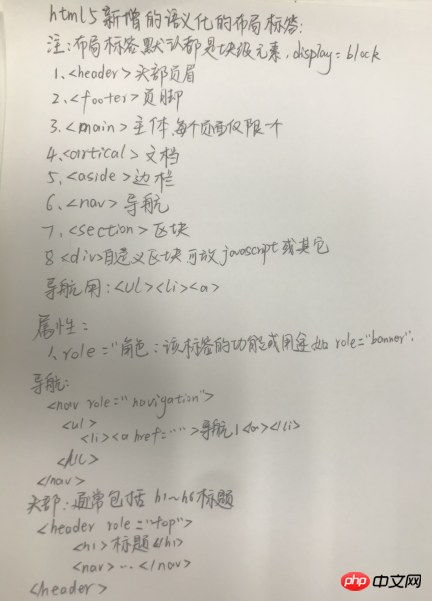 html5新增的语义化的布局标签:
注:布局标签默认都是块级元素,display=block
1.<header>头部页眉
2.<footer>页脚
3.<main>主体,每个页面仅限一个
4.<artical>文档
5.<aside>边栏
6.<nav>导航
7.<section>区块
8 <div>自定义区块可放javascript或其它
导航用:<ul><li><a>
属性:
1.role="角色:该标签的功能或用途如 role="banner".
导航:
<nav role="navigation">
<ul>
<li><a href="">导航1<a></li>
</UL>
</nav>
头部:通常包括h1~h6标题
<header role="top">
<h1>标题</h1>
<nav>...</nav>
</header>
php 中文网